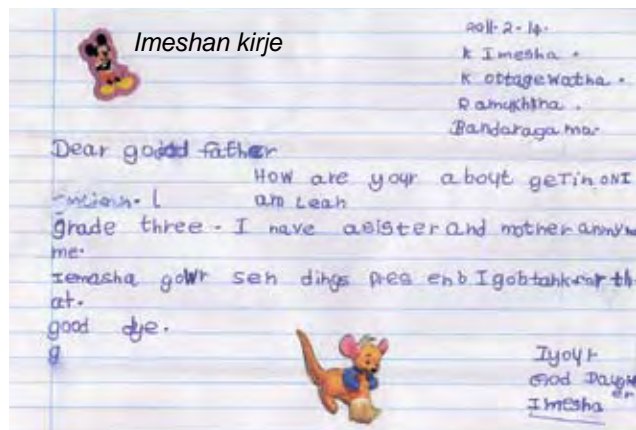 Imeshan kirje
2011-2-14.
K Imesha.
K ottagewatha.
Ramukhtna.
Bandaragama.
Dear good father
How are your about geTin ONI
am Leah
grade three. I have asister and mother
me.
Iemasha gowr sen dings pres enb Igobtahk for th
at.
good dye.
g
Iyour
God Daughter
Imesha